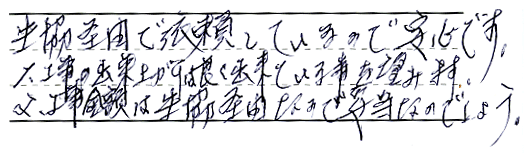 生協経由で依頼しているので安心です。
大工事の出来上がりは良く出来ている事を望みます。
又、工事金額は生協経由なので妥当なのでしょう。